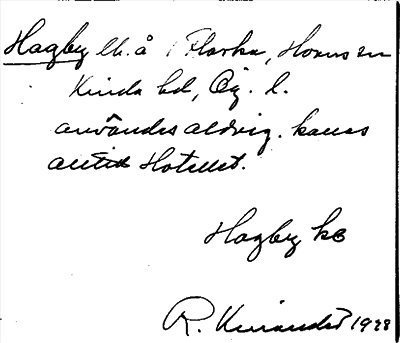 Hagby lh. å Flarka, Horns sn
Kinda hd, Ög. l.
användes aldrig. kallas
alltid Hotellet.
Hagby ks
R. Kinander 1928